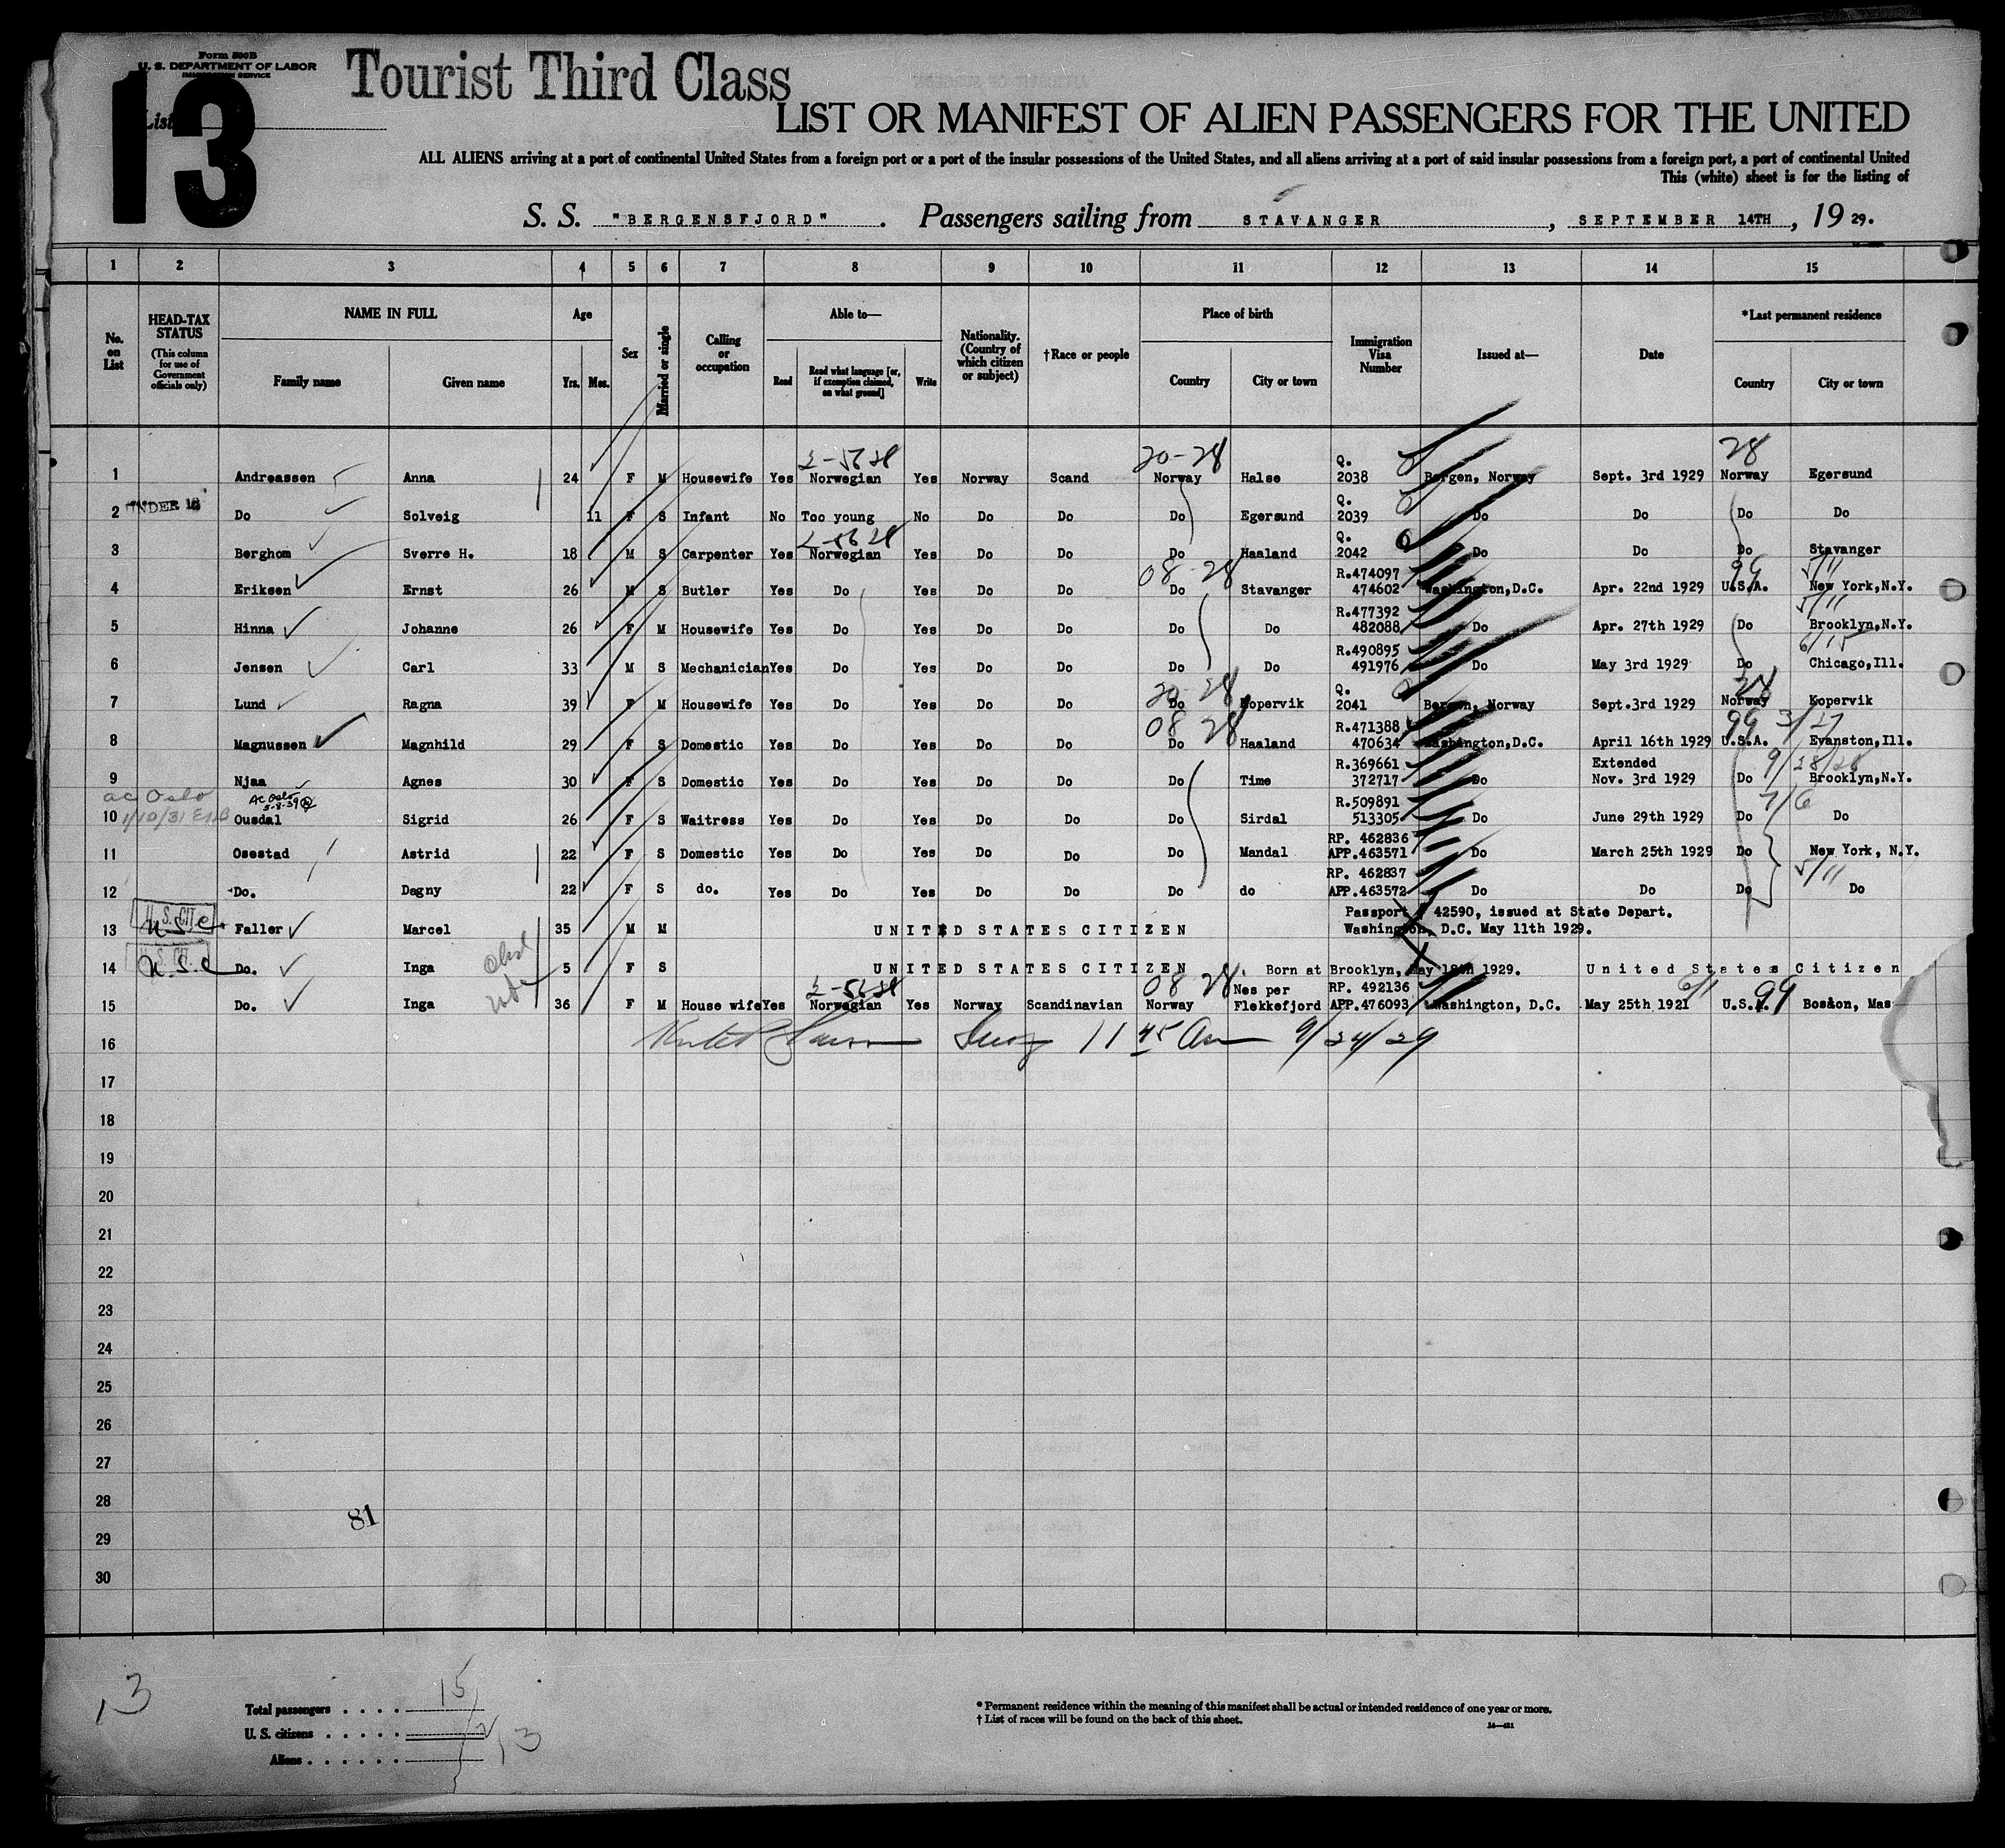 Form 500B
U. S. DEPARTMENT OF LABOR
IMMIGRATION SERVICE
Tourist Third Class
List
13
LIST OR MANIFEST OF ALIEN PASSENGERS FOR THE UNITED
ALL ALIENS arriving at a port of continental United States from a foreign port or a port of the insular possessions of the United States, and all aliens arriving at a port of said insular possessions from a foreign port, a port of continental United
This (white) sheet is for the listing of
S. S. "BERGENSFJORD". Passengers sailing from STAVANGER, SEPTEMBER 14TH, 19 29.
1 2 3 4 5 6 7 8 9 10 11 12 13 14 15
No. on List
HEAD-TAX STATUS (This column for use of Government officials only)
NAME IN FULL
Family name Given name
Age
Yrs. Mos.
Sex
Married or single
Calling or occupation
Able to—
Read
Read what language [or, if exemption claimed, on what ground]
Write
Nationality. (Country of which citizen or subject)
†Race or people
Place of birth
Country City or town
Immigration Visa Number
Issued at—
Date
*Last permanent residence
Country City or town
20-28 28
1 Andreassen Anna 24 F M Housewife Yes Norwegian Yes Norway Scand Norway Halse Q. 2038 Bergen, Norway Sept. 3rd 1929 Norway Egersund
UNDER 16
2 Do Solveig 11 F S Infant No Too young No Do Do Do Egersund Q. 2039 Do Do Do Do
3 Berghom Sverre H. 18 M S Carpenter Yes Norwegian Yes Do Do Do Haaland Q. 2042 Do Do Do Stavanger
08-28 99 5/11
4 Eriksen Ernst 26 M S Butler Yes Do Yes Do Do Do Stavanger R.474097 474602 Washington,D.C. Apr. 22nd 1929 U.S.A. New York,N.Y.
5/11
5 Hinna Johanne 26 F M Housewife Yes Do Yes Do Do Do Do R.477392 482088 Do Apr. 27th 1929 Do Brooklyn,N.Y.
6/15
6 Jensen Carl 33 M S Mechanician Yes Do Yes Do Do Do Do R.490895 491976 Do May 3rd 1929 Do Chicago,Ill.
20-28 28
7 Lund Ragna 39 F M Housewife Yes Do Yes Do Do Do Kopervik Q. 2041 Bergen, Norway Sept.3rd 1929 Norway Kopervik
08 28 99 3/27
8 Magnussen Magnhild 29 F S Domestic Yes Do Yes Do Do Do Haaland R.471388 470634 Washington,D.C. April 16th 1929 U.S.A. Evanston,Ill.
9/28/28
9 Njaa Agnes 30 F S Domestic Yes Do Yes Do Do Do Time R.369661 372717 Do Extended Nov. 3rd 1929 Do Brooklyn,N.Y.
ac Oslo
AC Oslo
5-8-39
7/6
10 Ousdal Sigrid 26 F S Waitress Yes Do Yes Do Do Do Sirdal R.509891 513305 Do June 29th 1929 Do Do
11 Osestad Astrid 22 F S Domestic Yes Do Yes Do Do Do Mandal RP. 462836 APP.463571 Do March 25th 1929 Do New York, N.Y.
5/11
12 Do. Dagny 22 F S do. Yes Do Yes Do Do Do do RP. 462837 APP.463572 Do Do Do Do
U. S. CIT.
U.S.C.
13 Faller Marcel 35 M M UNITED STATES CITIZEN Passport # 42590, issued at State Depart. Washington, D.C. May 11th 1929.
U. S. CIT.
U.S.C
14 Do. Inga 5 F S UNITED STATES CITIZEN Born at Brooklyn, May 18th 1929. United States Citizen
08 28 6/1 99
15 Do. Inga 36 F M House wife Yes Norwegian Yes Norway Scandinavian Norway Nes per Flekkefjord RP. 492136 APP.476093 Washington, D.C. May 25th 1921 U.S.A. Boston, Mas
16 11 45 Am 9/24/29
17
18
19
20
21
22
23
24
25
26
27
28
81
29
30
13
Total passengers . . . . 15
U. S. citizens . . . . . 2
Aliens . . . . . . 13
* Permanent residence within the meaning of this manifest shall be actual or intended residence of one year or more.
† List of races will be found on the back of this sheet.
14—421